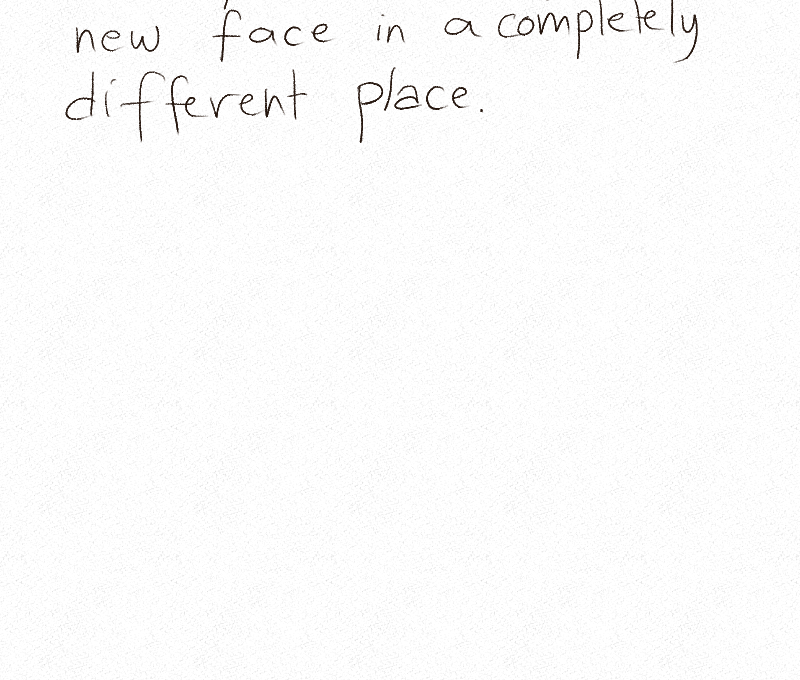 new face in a completely
different place.